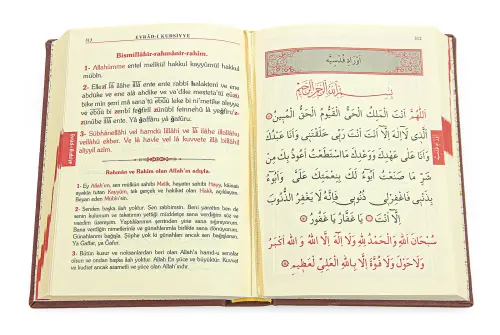 EVRÂD-I KUDSİYYE
Bismillâhir-rahmânir-rahîm.
1- Allahümme entel melikül hakkul kayyûmül hakkul
mübîn.
2- Ellezî lâ ilâhe illâ ente rabbî halaktenî ve ene
abdüke ve ene alâ ahdike ve va'dike mesteta'tü eûzü
bike min şerri mâ sana'tü ebûü leke bi ni'metike aleyye
ve ebûü bi zenbî feğfirlî zünûbî fe innehû lâ yağfiru'z-
zünûbe illâ ente. Yâ ğaffâru yâ ğafûru.
3- Sübhânellâhi vel hamdü lillâhi ve lâ ilâhe illallahu
vellâhü ekber. Ve lâ havle ve lâ kuvvete illâ billâhil
aliyyil azîm.
Rahmân ve Rahîm olan Allah'ın adıyla.
1- Ey Allah'ım, sen mülkün sahibi Melik, hayatın sahibi Hayy, kâinatı
ayakta tutan Kayyûm, tek gerçek ve hakikat olan Hakk, açıklayan,
Beyan eden Mübîn'sin.
2- Senden başka ilah yoktur. Sen rabbimsin. Beni yaratan ben de
senin kulunum ve takatımın yettiği müddetçe sana verdiğim söz ve
vaadim üzereyim. Yaptıklarımın şerrinden yine sana sığınıyorum.
Bana verdiğin nimetlerinle ve günahlarımla birlikte sana dönüyorum.
Günahlarımı bağışla. Şüphe yok ki günahları ancak sen bağışlarsın.
Ya Gaffar, ya Gafur.
3- Bütün kusur ve noksanlardan beri olan Allah'a hamd-u senalar
olsun ve ondan başka ilah yoktur. Allah En yüce ve büyüktür. Kuvvet
ve kudret ancak azametli ve yüce olan Allah'ındır.
اَوْرَادِ قُدْسِيَّه
بِسْمِ اللهِ الرَّحْمٰنِ الرَّحِيمِ
اَللّٰهُمَّ اَنْتَ الْمَلِكُ الْحَقُّ الْقَيُّومُ الْحَقُّ الْمُبِينُ
اَلَّذِى لَا اِلٰهَ اِلَّا اَنْتَ رَبِّى خَلَقْتَنِى وَاَنَا عَبْدُكَ
وَاَنَا عَلٰى عَهْدِكَ وَوَعْدِكَ مَا اسْتَطَعْتُ اَعُوذُ بِكَ مِنْ
شَرِّ مَا صَنَعْتُ اَبُوءُ لَكَ بِنِعْمَتِكَ عَلَىَّ وَاَبُوءُ
بِذَنْبِى فَاغْفِرْلِى ذُنُوبِى فَاِنَّهُ لَا يَغْفِرُ الذُّنُوبَ
اِلَّا اَنْتَ يَا غَفَّارُ يَا غَفُورُ
سُبْحَانَ اللهِ وَالْحَمْدُ لِلّٰهِ وَلَا اِلٰهَ اِلَّا اللهُ وَ اللهُ اَكْبَرُ
وَلَا حَوْلَ وَلَا قُوَّةَ اِلَّا بِاللهِ الْعَلِىِّ الْعَظِيمِ